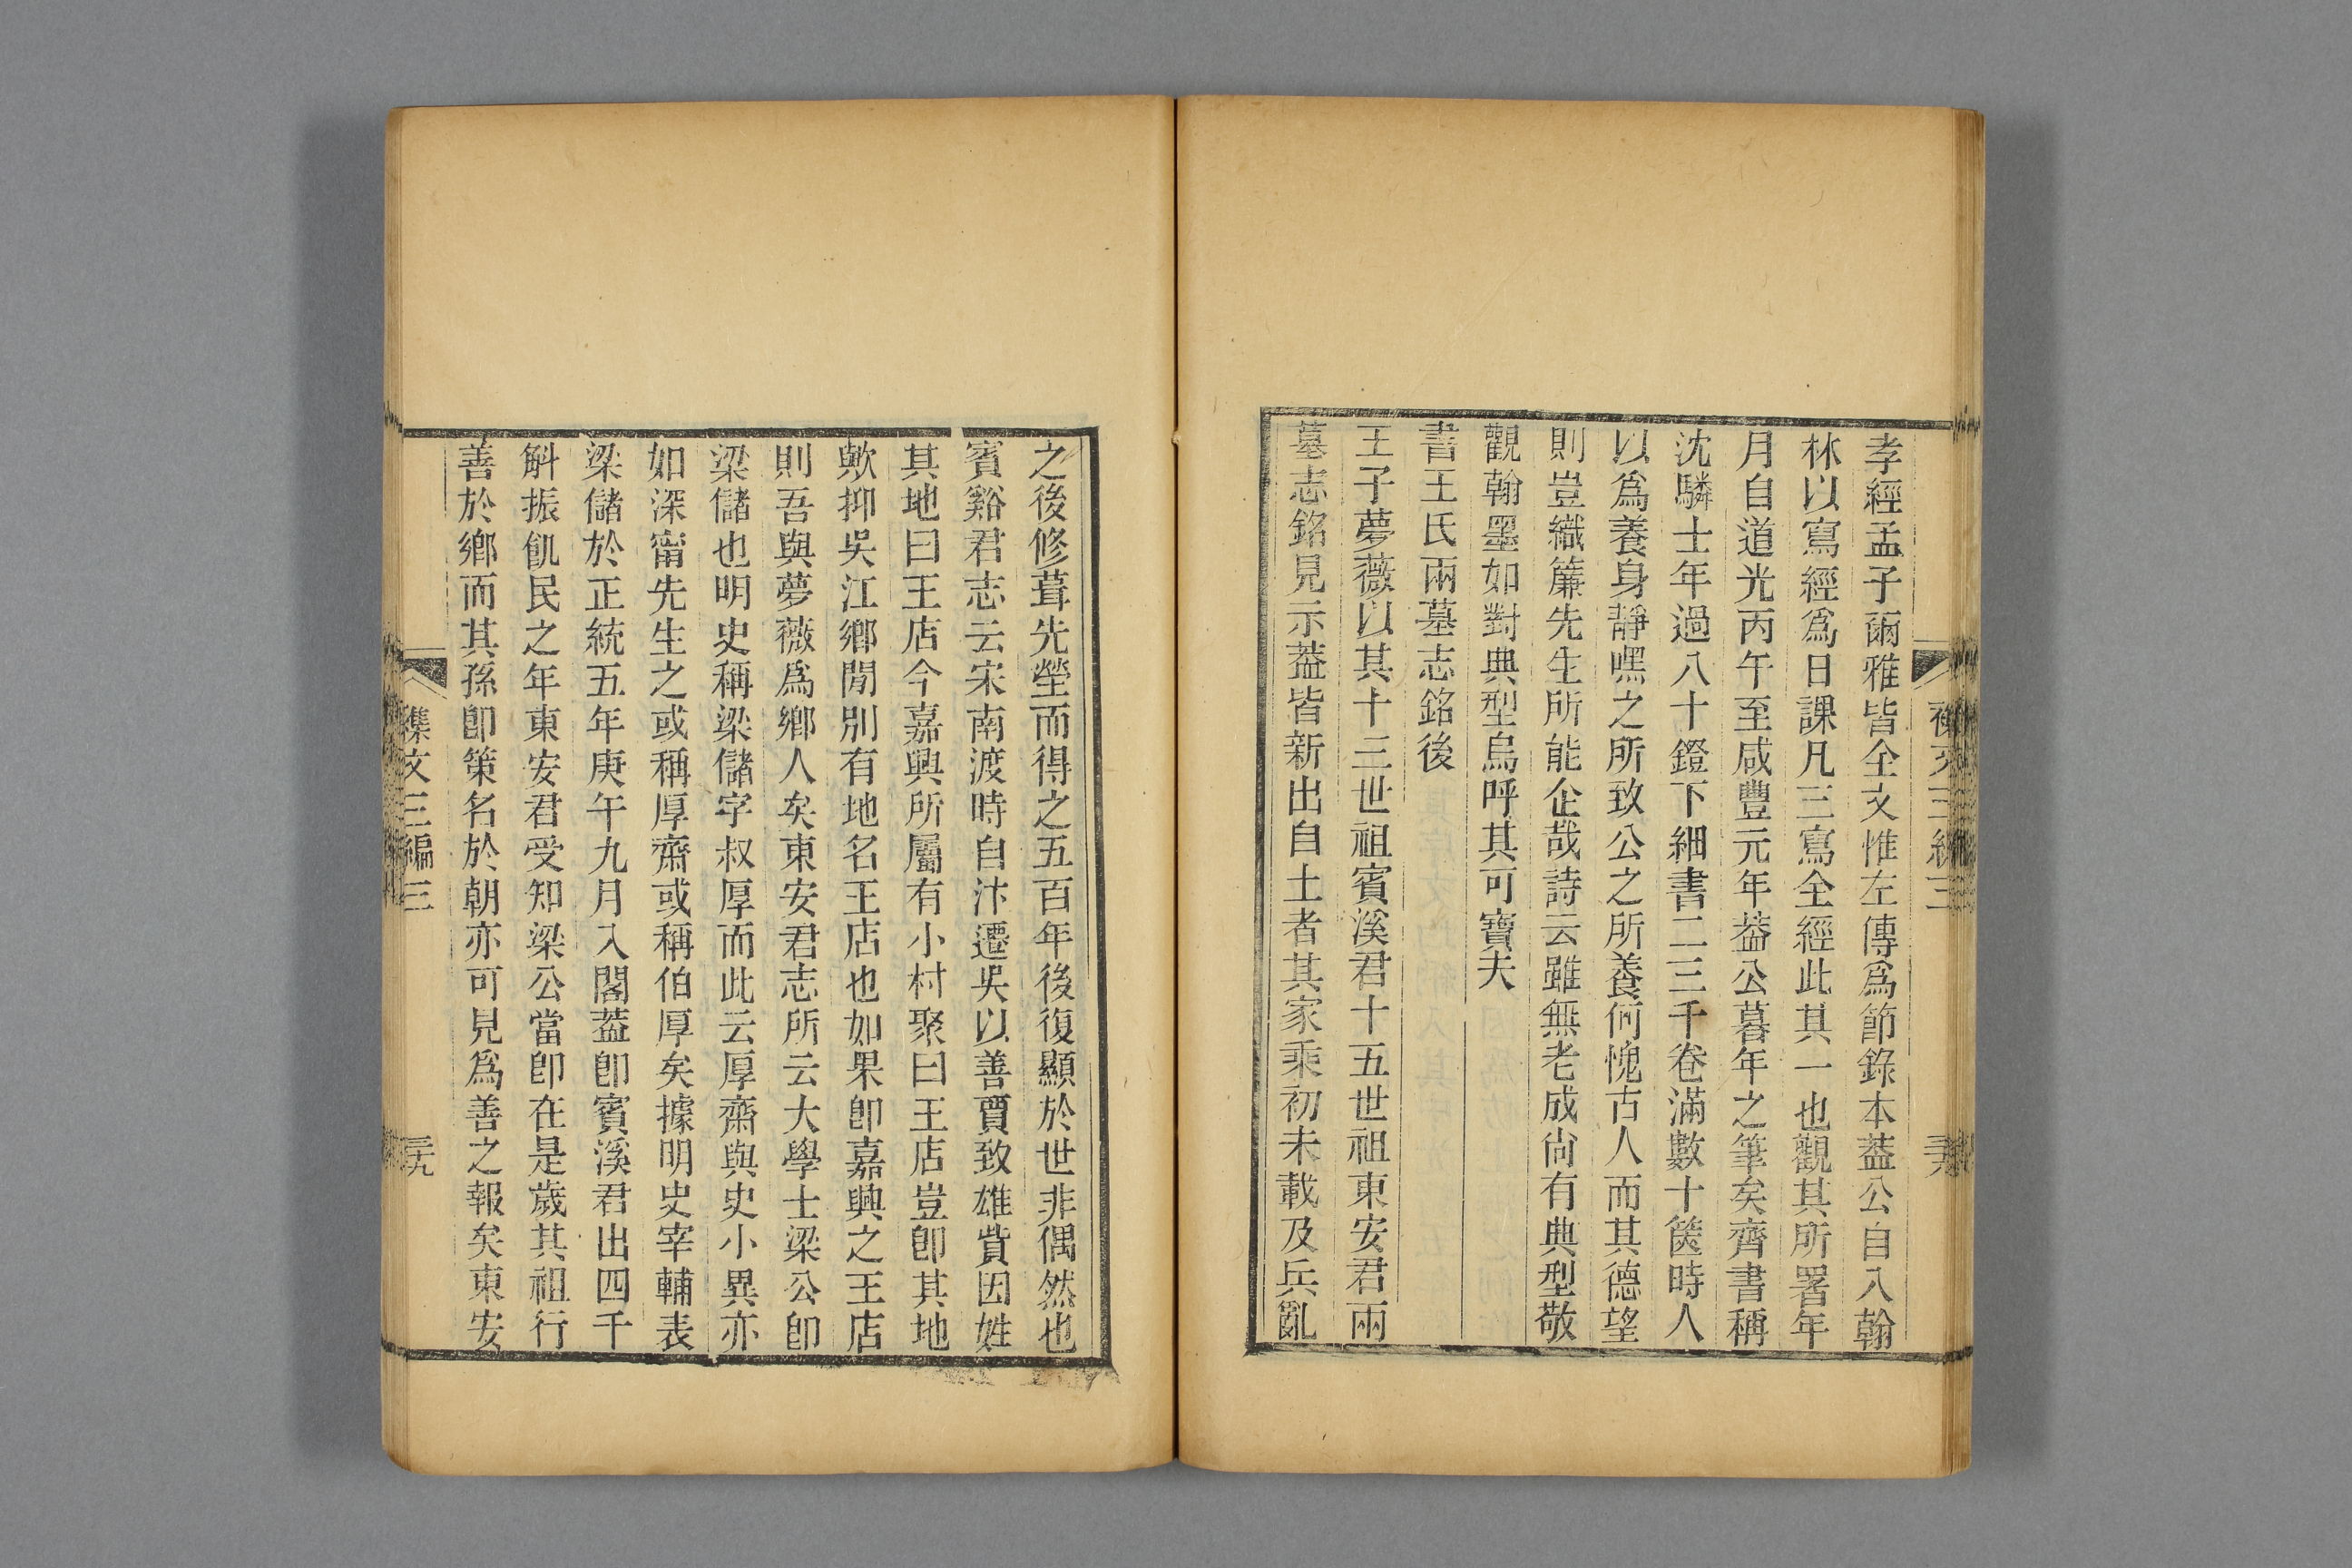 孝經孟子爾雅皆全文惟左傳爲節錄本葢公自入翰
林以寫經爲日課凡三寫全經此其一也觀其所署年
月自道光丙午至咸豐元年葢公暮年之筆矣齊書稱
沈驎士年過八十鐙下細書二三千卷滿數十篋時人
以爲養身靜嘿之所致公之所養何愧古人而其德望
則豈織簾先生所能企哉詩云雖無老成尙有典型敬
觀翰墨如對典型烏呼其可寶夫
書王氏兩墓志銘後
王子夢薇以其十三世祖賓溪君十五世祖東安君兩
墓志銘見示葢皆新出自土者其家乘初未載及兵亂
之後修葺先塋而得之五百年後復顯於世非偶然也
賓谿君志云宋南渡時自汴遷吳以善賈致雄貲因姓
其地曰王店今嘉興所屬有小村聚曰王店豈卽其地
歟抑吳江鄉閒別有地名王店也如果卽嘉興之王店
則吾與夢薇爲鄉人矣東安君志所云大學士梁公卽
梁儲也明史稱梁儲字叔厚而此云厚齋與史小異亦
如深甯先生之或稱厚齋或稱伯厚矣據明史宰輔表
梁儲於正統五年庚午九月入閣葢卽賓溪君出四千
斛振飢民之年東安君受知梁公當卽在是歲其祖行
善於鄉而其孫卽策名於朝亦可見爲善之報矣東安
襍文三編三
三九